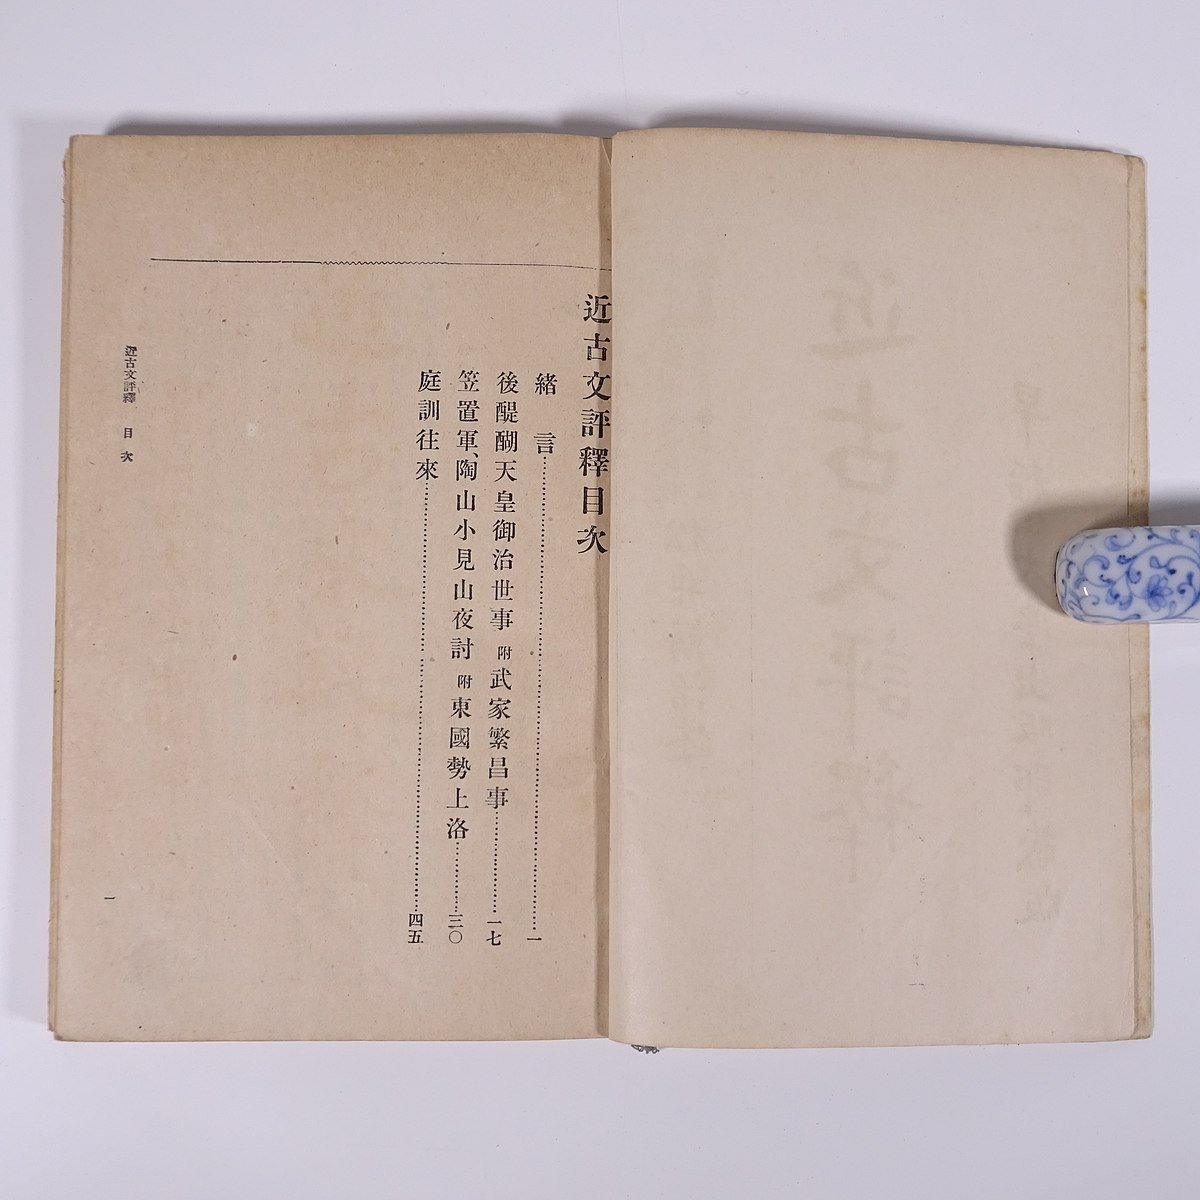 近古文評釋目次
緒言………一
後醍醐天皇御治世事 附 武家繁昌事………一七
笠置軍、陶山小見山夜討 附 東國勢上洛………三〇
庭訓往來………四五
近古文評釋 目次
一